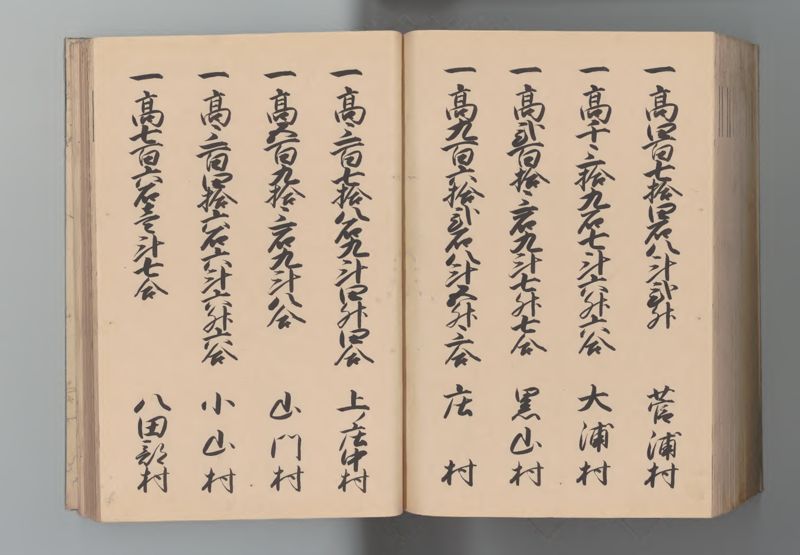 一高四百七拾四石八斗弐升 菅浦村
一高千三拾九石七斗六升六合 大浦村
一高弐百拾三石九斗七升七合 黒山村
一高九百六拾弐石八斗五升三合 庄村
一高三百七拾八石九斗四升四合 上ノ庄中村
一高五百九拾三石九斗八合 山門村
一高三百四拾六石六斗六升六合 小山村
一高七百六石壱斗七合 八田部村